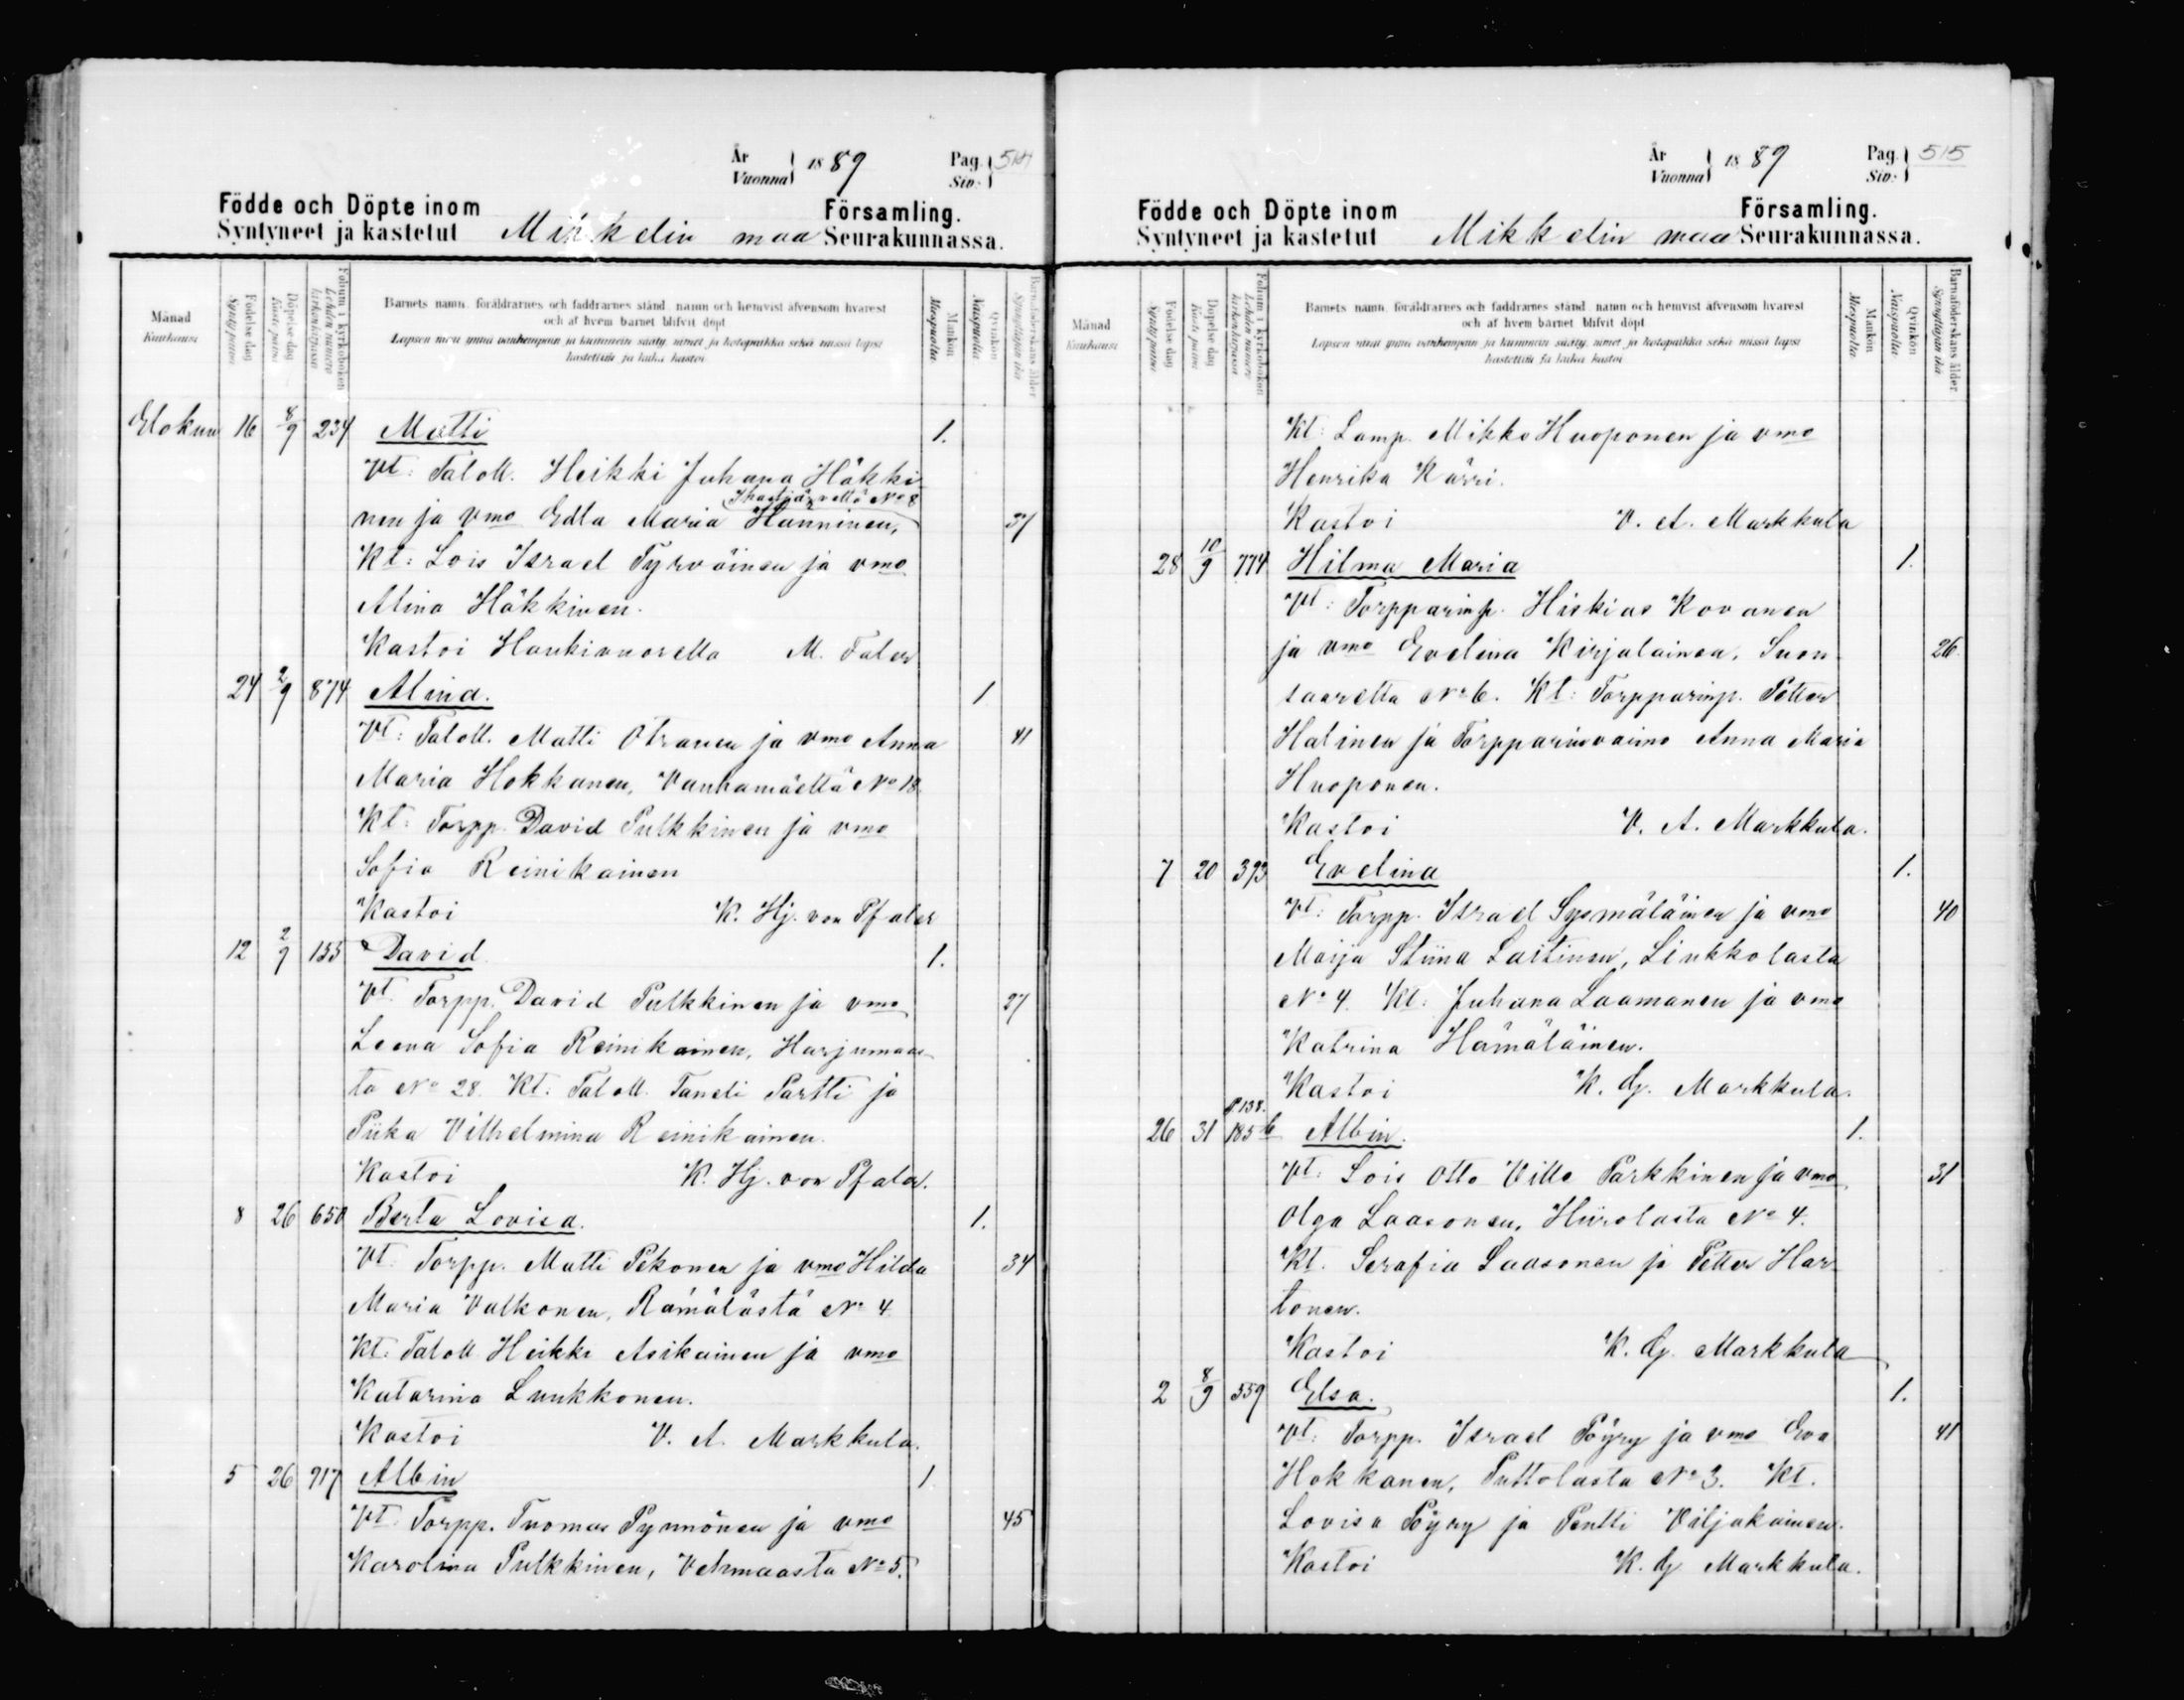 År Vuonna 1889 Pag. Siv: 514
Födde och Döpte inom Församling.
Syntyneet ja kastetut Mikkelin maa Seurakunnassa.
Månad Kuukausi
Födelse dag Syntypäivä
Döpelse dag Kastepäivä
Folium i kyrkoboken Lehden numero kirkonkirjassa
Barnets namn, föräldrarnes och faddrarnes stånd, namn och hemvist äfvensom hvarest
och af hvem barnet blifvit döpt
Lapsen nimi ynnä vanhempain ja kummein sääty, nimet ja kotopaikka sekä missä lapsi
kastettiin ja kuka kastoi
Mankön Miespuolta.
Qvinkön Naispuolta.
Barnaföderskans ålder Synnyttäjän ikä
Elokuu 16 8/9 234 Matti 1.
Vt: Taloll. Heikki Juhana Häkki-
Ihastjärveltä No 8
nen ja vmo Edla Maria Hänninen, 37
Kt: Lois Israel Tyrväinen ja vmo
Alina Häkkinen.
Kastoi Haukivuorella M. Faler
24 2/9 874 Alina. 1
Vt: Taloll. Matti Otranen ja vmo Anna 41
Maria Hokkanen, Vanhamäeltä No 18.
Kt: Torpp. David Pulkkinen ja vmo
Sofia Reinikainen
Kastoi K. Hj. von Pfaler
12 2/9 155 David 1.
Vt. Torpp. David Pulkkinen ja vmo 27
Leena Sofia Reinikainen, Harjumaas-
ta No 28. Kt: Taloll. Taneli Partti ja
Piika Vilhelmina Reinikainen.
Kastoi K. Hj. von Pfaler.
8 26 650 Berta Lovisa. 1.
Vt: Torpp. Matti Pekonen ja vmo Hilda 34
Maria Valkonen, Rämälästä No 4.
Kt: Taloll Heikki Asikainen ja vmo
Katarina Luukkonen.
Kastoi V. A. Markkula.
5 26 717 Albin 1
Vt. Torpp. Tuomas Pynnönen ja vmo 45
Karolina Pulkkinen, Vehmaasta No 5.
År Vuonna 1889 Pag. Siv: 515
Födde och Döpte inom Församling.
Syntyneet ja kastetut Mikkelin maa Seurakunnassa.
Månad Kuukausi
Födelse dag Syntypäivä
Döpelse dag Kastepäivä
Folium i kyrkoboken Lehden numero kirkonkirjassa
Barnets namn, föräldrarnes och faddrarnes stånd, namn och hemvist äfvensom hvarest
och af hvem barnet blifvit döpt
Lapsen nimi ynnä vanhempain ja kummein sääty, nimet ja kotopaikka sekä missä lapsi
kastettiin ja kuka kastoi
Mankön Miespuolta.
Qvinkön Naispuolta.
Barnaföderskans ålder Synnyttäjän ikä
Kt: Lamp. Mikko Huoponen ja vmo
Henrika Kärri.
Kastoi V. A. Markkula
28 10/9 774 Hilma Maria 1.
Vt: Torpparinp. Hiskias Kovanen
ja vmo Evelina Kirjalainen, Suon- 26
saarelta No 6. Kt: Torpparinp. Petter
Halinen ja Torpparinvaimo Anna Maria
Huoponen.
Kastoi V. A. Markkula.
7 20 393 Evelina 1.
Vt: Torpp. Israel Sysmäläinen ja vmo 40
Maija Stiina Laitinen, Liukkolasta
No 4. Kt: Juhana Laamanen ja vmo
Katrina Hämäläinen.
Kastoi K. G. Markkula.
P. 138.
26 31 185 b Albin. 1.
Vt: Lois Otto Ville Parkkinen ja vmo 31
Olga Laasonen, Hiirolasta No 4.
Kt. Serafia Laasonen ja Petter Har-
tonen.
Kastoi K. G. Markkula
2 8/9 559 Elsa. 1.
Vt: Torpp. Israel Pöyry ja vmo Eva 41
Hokkanen, Puttolasta No 3. Kt.
Lovisa Pöyry ja Pentti Viljakainen.
Kastoi K. G Markkula.